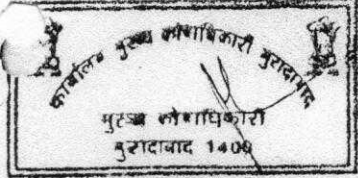 कार्यालय मुख्य कोषाधिकारी मुरादाबाद
मुख्य कोषाधिकारी
मुरादाबाद 1400